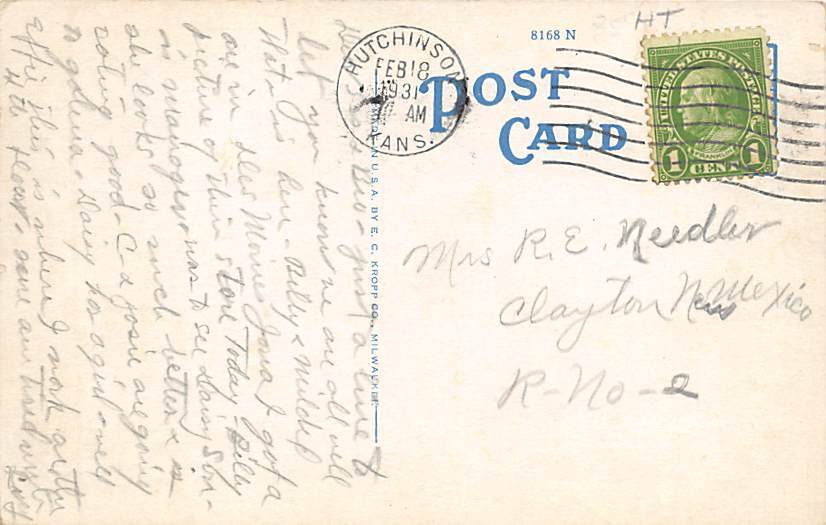 HT
8168 N
HUTCHINSON
FEB 18
1931
AM
KANS.
POST
CARD
UNITED STATES POSTAGE
FRANKLIN
1 CENT 1
MADE IN U.S.A. BY E. C. KROPP CO., MILWAUKEE
Mrs R. E. Needler
Clayton New Mexico
R-No-2
just a line to
let you know we are all well
that is here - Billy & Mildred
are in Des Moines Iowa I got a
picture of their store Today - Billy
is manager was to see Daisy Sun-
she looks so much better & is
eating good - C - & Josie are going
to Galena - Daisy has a girl & well
this is where I work